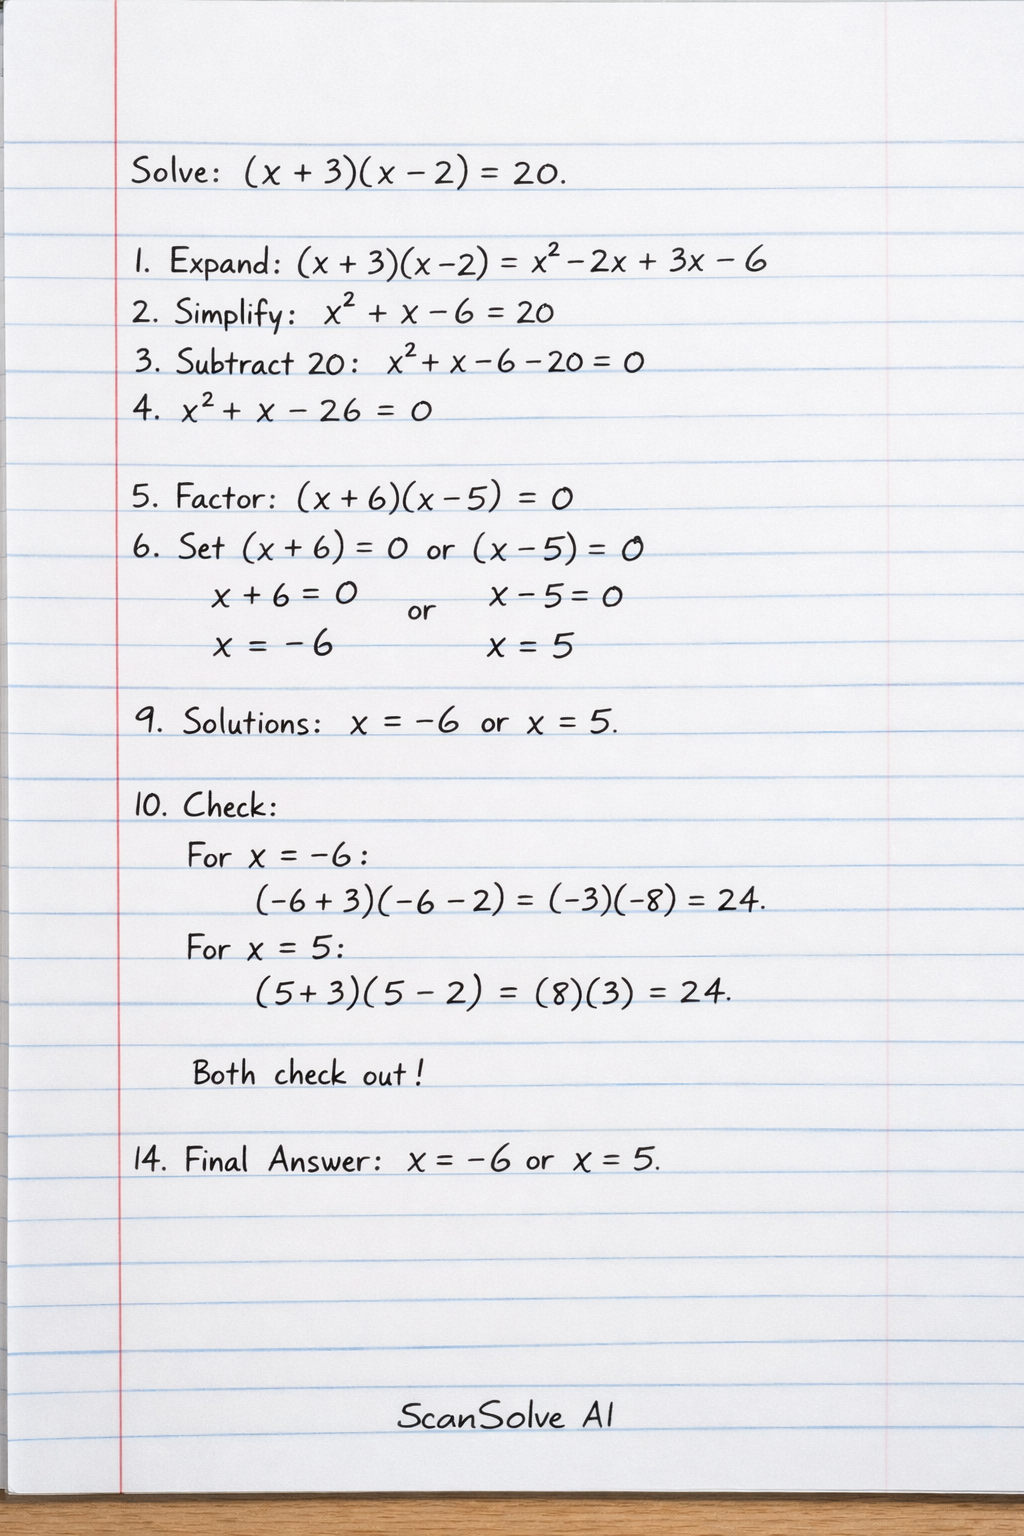 Solve: (x + 3)(x − 2) = 20.
1. Expand: (x + 3)(x − 2) = x² − 2x + 3x − 6
2. Simplify: x² + x − 6 = 20
3. Subtract 20: x² + x − 6 − 20 = 0
4. x² + x − 26 = 0
5. Factor: (x + 6)(x − 5) = 0
6. Set (x + 6) = 0 or (x − 5) = 0
x + 6 = 0 or x − 5 = 0
x = −6 x = 5
9. Solutions: x = −6 or x = 5.
10. Check:
For x = −6:
(−6 + 3)(−6 − 2) = (−3)(−8) = 24.
For x = 5:
(5 + 3)(5 − 2) = (8)(3) = 24.
Both check out!
14. Final Answer: x = −6 or x = 5.
ScanSolve AI